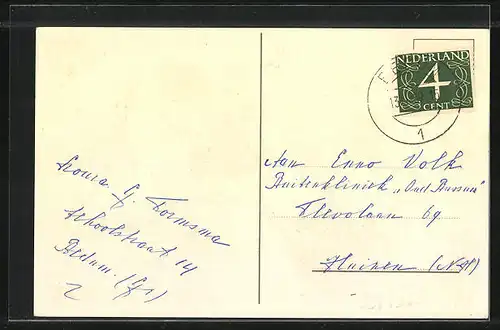 NEDERLAND
4
CENT
1
Aan Enno Volk
Buitenkliniek „Oud Bussem"
Flevolaan 69
Huizen (N.H)
G. Formsma
Schoolstraat 14
Bedum. (Gr)